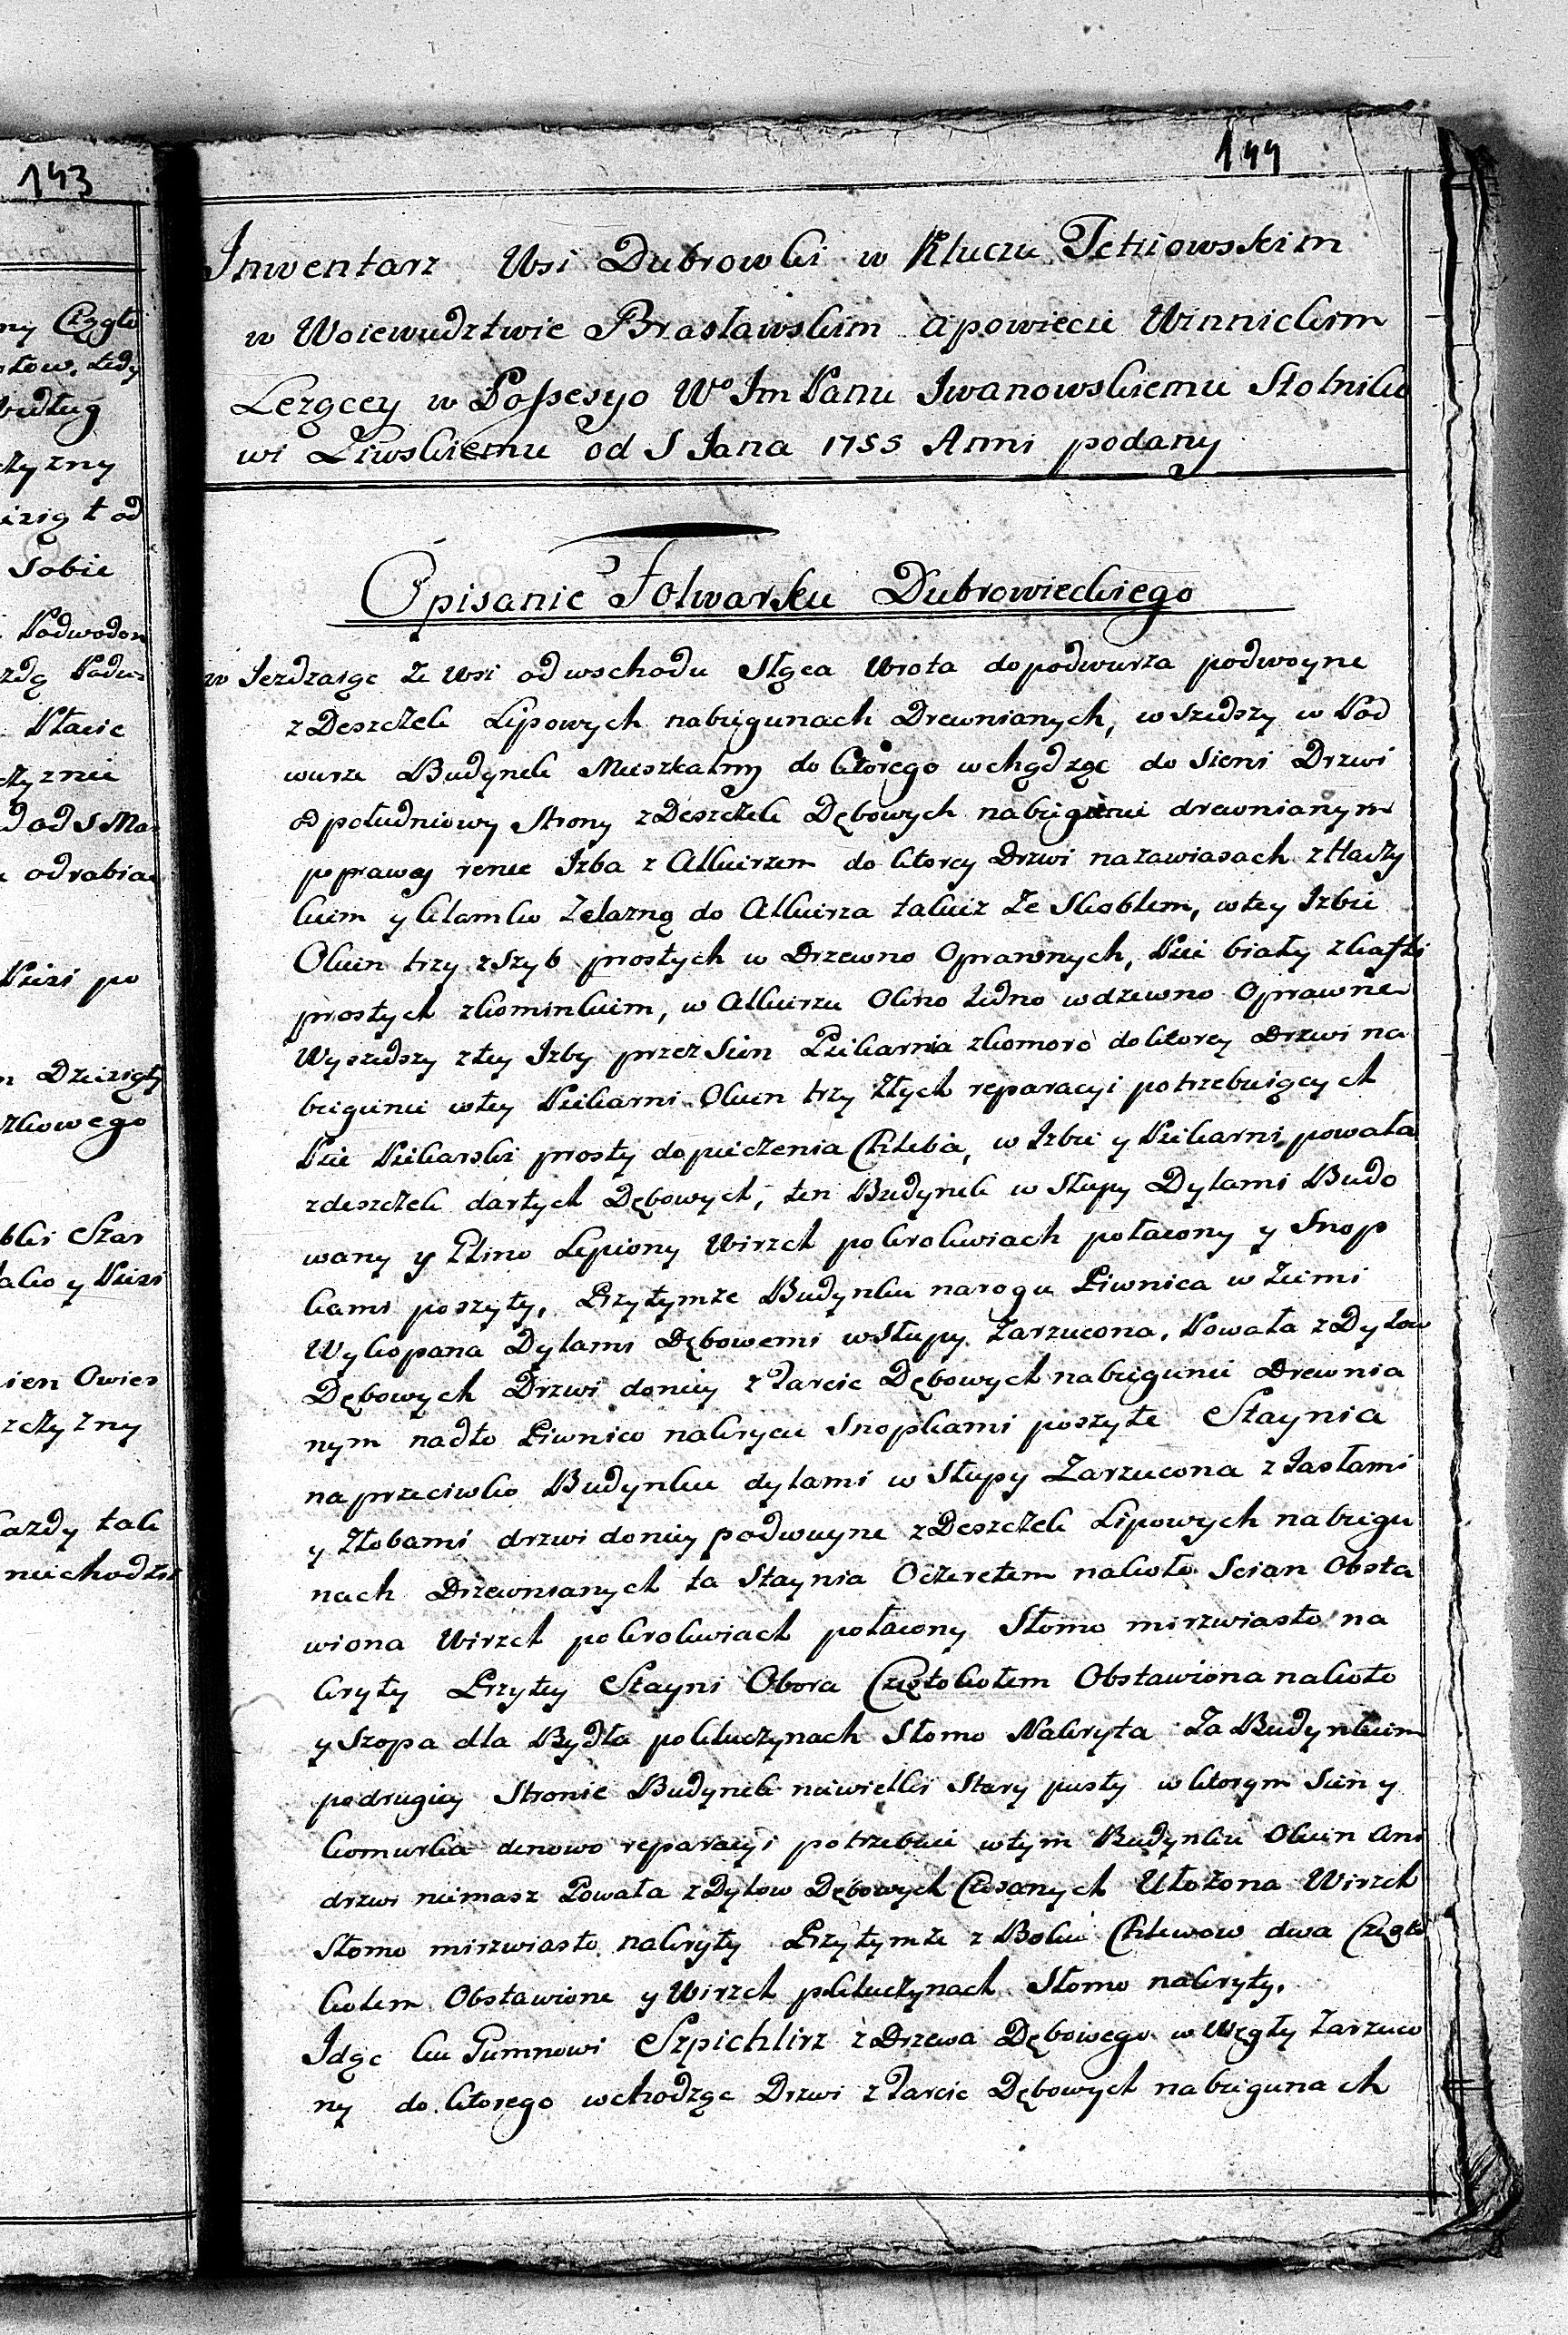 143
ny Częgło
słow. tedy
według
czyzny
izią t od
Sobie
Podwodow
zdą Podw
Płacie
czyznie
d od S Mar
odrabiac
Piesi po
Dziesięty
zkowego
bki Szar
Owies
szczyzny
każdy tak
niechodzi
144
Inwentarz Wsi Dubrowki w Kluczu Tetiowskim
w Woiewudztwie Brasławskim a powiecie Winnickim
Leząccy w Possesyo Wo Im Panu Iwanowskiemu Stolniko
wi Liwskiemu od S Iana 1755 Anni podany
Opisanie Folwarku Dubrowieckiego
w Iezdzaiąc Ze Wsi od wschodu Słąca Wrota do podwurza podwoyne
z Deszczek Lipowych na biegunach Drewnianych, w szedszy w Pod
wurze Budynek Mieszkalny do ktorego wchądząc do Sieni Drzwi
od południowy Strony z Deszczek Dębowych na biegunie drewnianym
po prawey rence Izba z Alkierzem do ktorey Drzwi na zawiasach z Haczy
kiem y klamko Zelazną do Alkierza takież Ze Skoblem, w tey Izbie
Okien trzy z szyb prostych w Drzewno Oprawnych, Piec biały z kafli
prostych z kominkiem, w Alkierzu Okno Iedno w dzewno Oprawne
Wyszedszy z tey Izby przez Sien Piekarnia z komoro do ktorey Drzwi na
biegunie w tey Piekarni Okien trzy Złych reparacyi potrzebuiących
Piec Piekarski prosty do pieczenia Chleba, w Izbie y Piekarni powała
z deszczek dartych Dębowych, ten Budynek w Słupy Dylami Budo
wany y Glino Lepiony Wirzch po krokwiach połacony y Snop
kami poszyty, Przytymze Budynku na rogu Piwnica w Ziemi
Wykopana Dylami Dębowemi w Słupy Zarzucona, Powała z Dylow
Dębowych Drzwi do niey z Tarcic Dębowych na biegunie Drewnia
nym nad to Piwnico nakrycie Snopkami poszyte Staynia
na przeciwko Budynku dylami w Słupy Zarzucona z Iasłami
y Złobami drzwi do niey podwuyne z Deszczek Lipowych na biegu
nach Drzewnianych ta Staynia Oczeretem nakoło Scian Obsta
wiona Wirzch po krokwiach połacony Słomo mirzwiasto na
kryty Przytey Stayni Obora Częstokołem Obstawiona nakoło
y Szopa dla Bydła po kluczynach Słomo Nakryta Za Budynkiem
po drugiey Stronie Budynek niewielki Stary pusty w ktorym Sien y
komurka denowo reparacyi potrzebuie w tym Budynku Okien Ani
drzwi niemasz Powała z Dylow Dębowych Ciosanych Ułożona Wirzch
Słomo mirzwiasto nakryty Przytymze z Boku Chlewow dwa Często
kołem Obstawione y Wirzch po kluczynach Słomo nakryty.
Idąc ku Gumnowi Szpichlirz z Drzewa Dębowego w Węgły Zarzuco
ny do ktorego wchodząc Drzwi z Tarcic Dębowych na biegunach